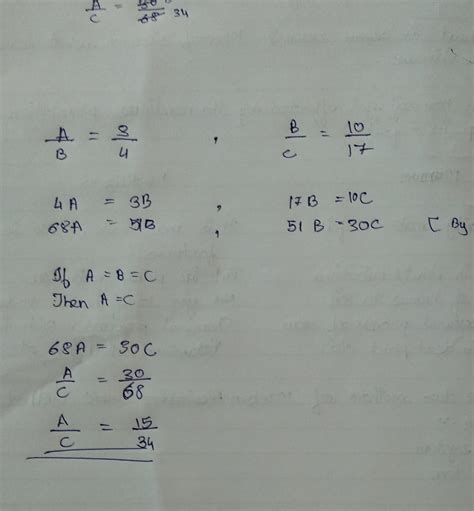 A/C = 30/68 34
A/B = 3/4 , B/C = 10/17
4A = 3B , 17B = 10C
68A = 51B , 51B = 30C [ By
If A = B = C
Then A = C
68A = 30C
A/C = 30/68
A/C = 15/34